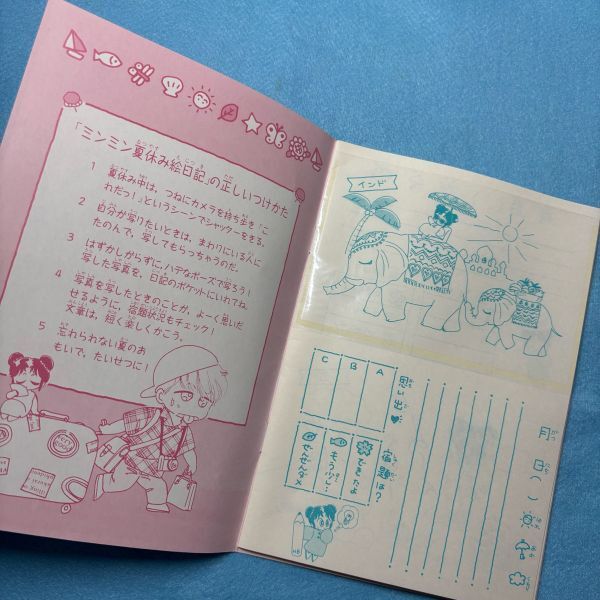 「ミンミン夏休み絵日記」の正しいつけかた
1 夏休み中は、つねにカメラを持ち歩き「こ
れだっ!」というシーンでシャッターをきる。
2 自分が写りたいときは、まわりにいる人に
たのんで、写してもらっちゃうのだ。
3 はずかしがらずに、ハデなポーズで写ろう!
写した写真を、日記のポケットにいれてね。
4 写真を写したときのことが、よーく思いだ
せるように、宿題状況もチェック!
文章は、短く楽しくかこう。
5 忘れられない夏のお
もいで、たいせつに!
インド
月 日( )
思い出♥
A
B
C
宿題は?
できたよ
もう少し!
ぜんぜんダメ
HB